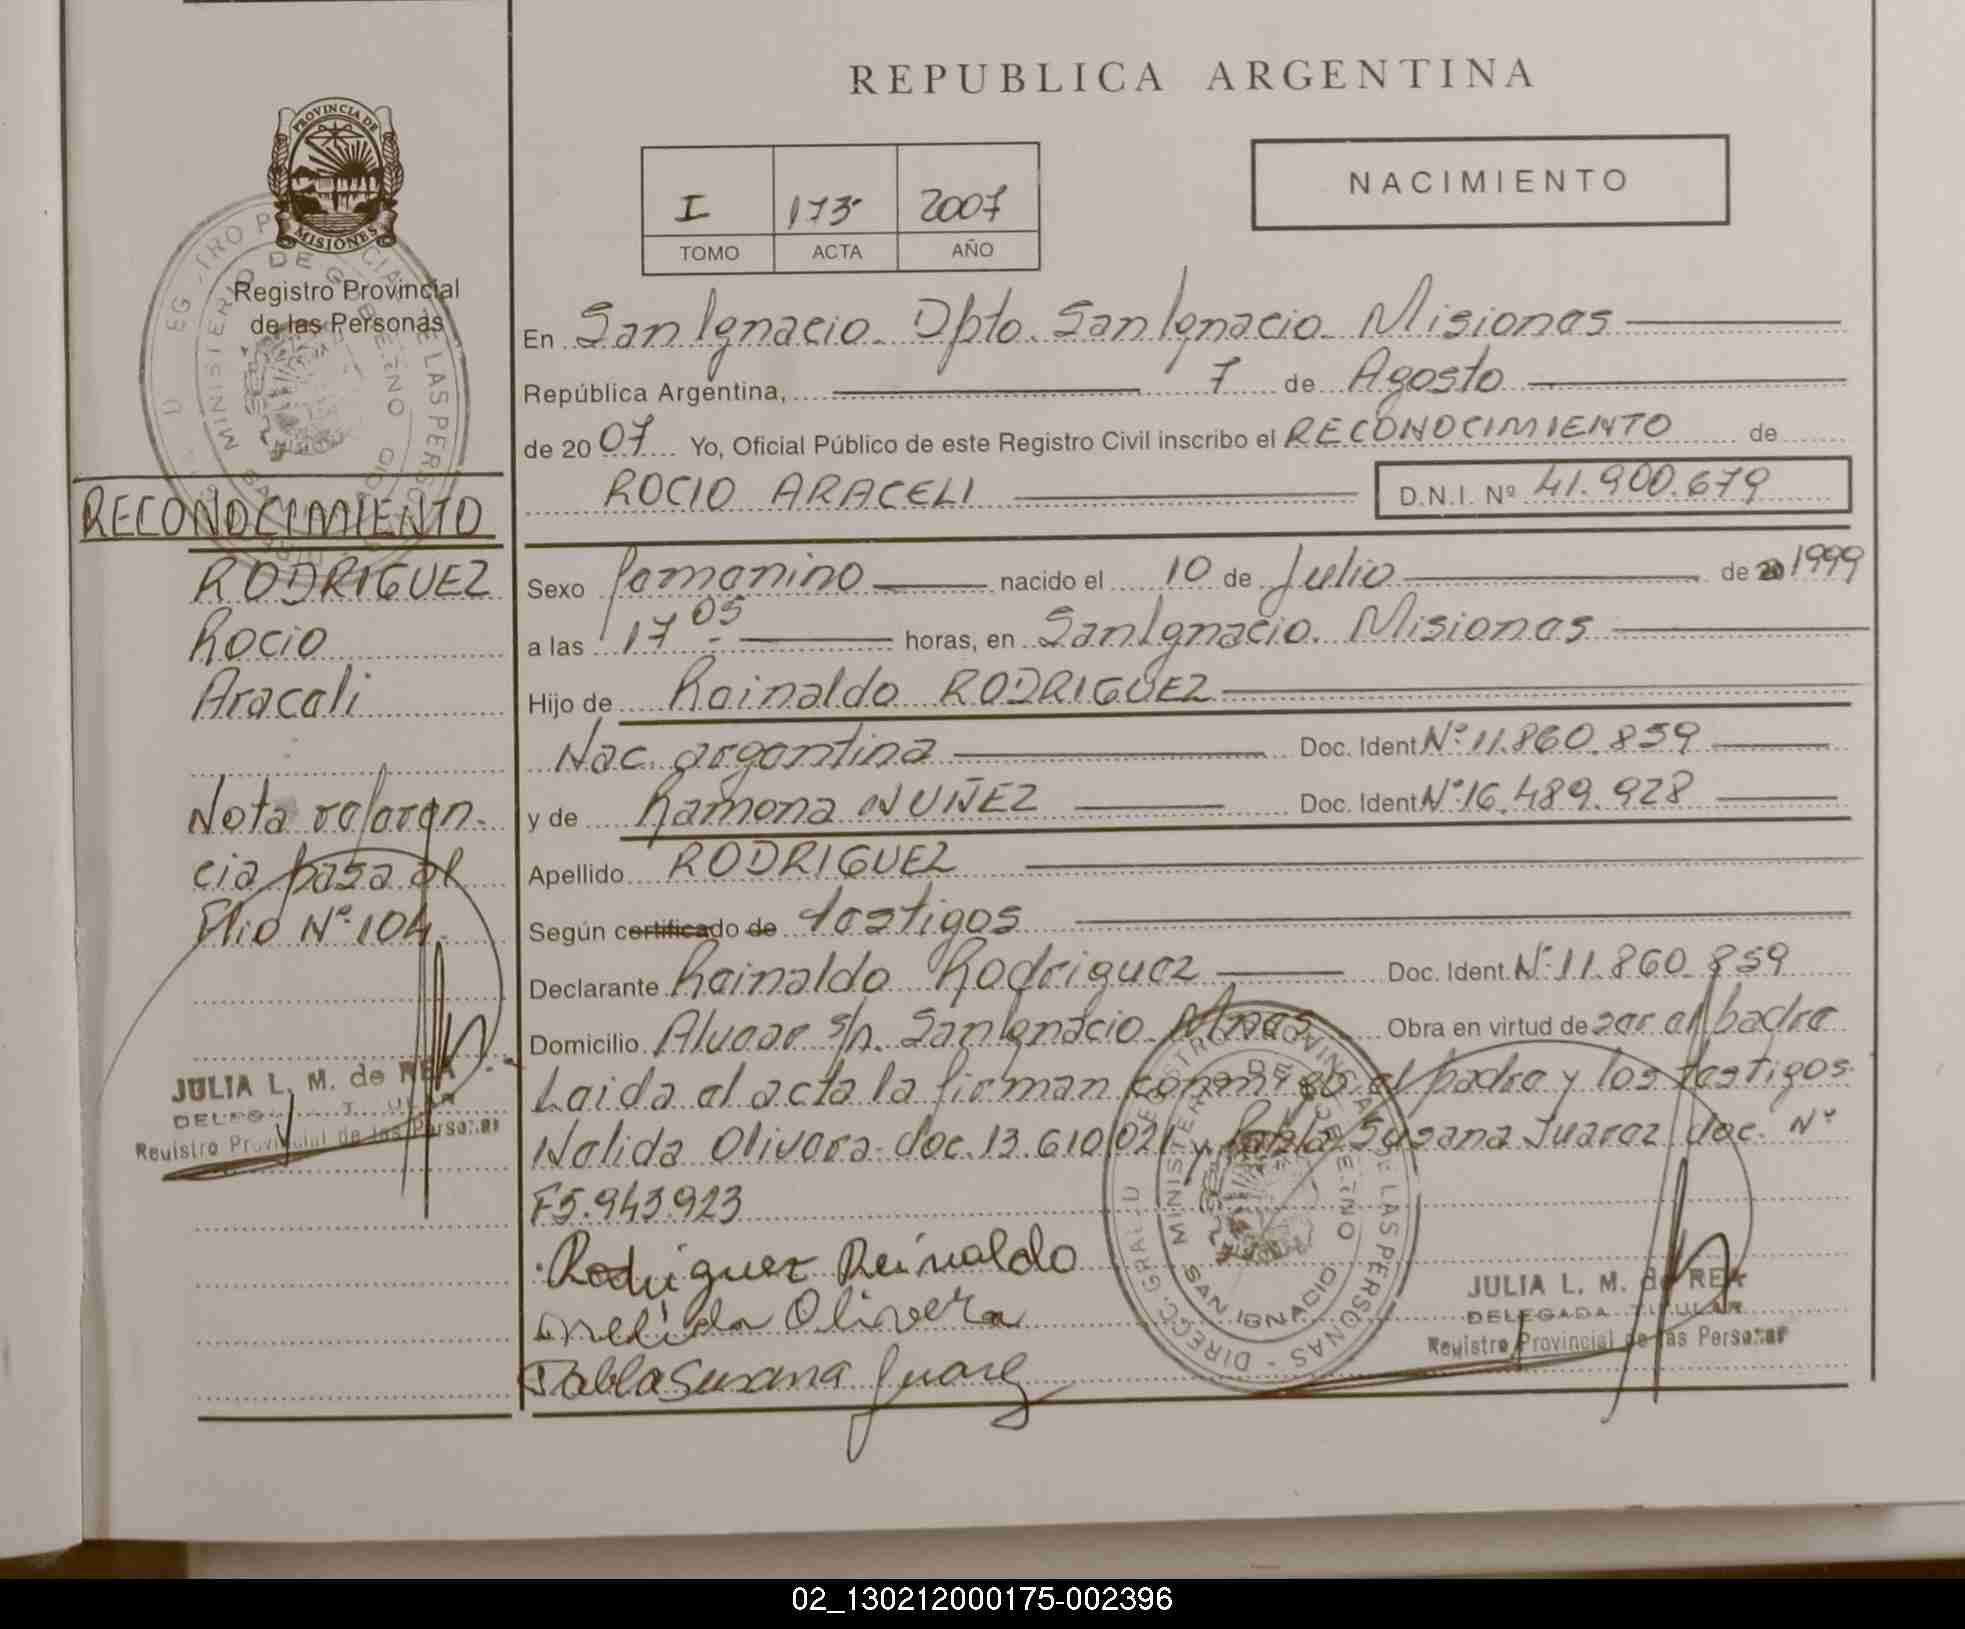 REPUBLICA ARGENTINA
PROVINCIA DE
MISIONES
Registro Provincial
de las Personas
NACIMIENTO
I 173 2007
TOMO ACTA AÑO
En San Ignacio Dpto. San Ignacio Misiones
República Argentina, 7 de Agosto
de 2007 Yo, Oficial Público de este Registro Civil inscribo el RECONOCIMIENTO de
ROCIO ARACELI D.N.I. Nº 41.900.679
Sexo femenino nacido el 10 de Julio de 20 1999
a las 17 05 horas, en San Ignacio. Misiones
Hijo de Reinaldo RODRIGUEZ
Nac. argentina Doc. Ident Nº 11.860.859
y de Ramona NUÑEZ Doc. Ident Nº 16.489.928
Apellido RODRIGUEZ
Según certificado de testigos
Declarante Reinaldo Rodriguez Doc. Ident. Nº 11.860.859
Domicilio Alvear s/n. San Ignacio Mnes Obra en virtud de ser el padre
Leida el acta la firman conmigo el padre y los testigos
Nelida Olivera doc. 13.610.021 y Pabla Susana Juarez doc. Nº
F5.943.923
Rodriguez Reinaldo
nelida Olivera
Pabla Susana Juarez
MINISTERIO DE GOBIERNO
SAN IGNACIO
DIRECC. GRAL. D REGISTRO PROVINCIAL DE LAS PERSONAS
JULIA L. M. de REA
DELEGADA TITULAR
Registro Provincial de las Personas
RECONOCIMIENTO
RODRIGUEZ
Rocio
Araceli
Nota referen-
cia pasa al
Flio Nº 104
JULIA L. M. de REA
DELEGADA TITULAR
Registro Provincial de las Personas
02_130212000175-002396